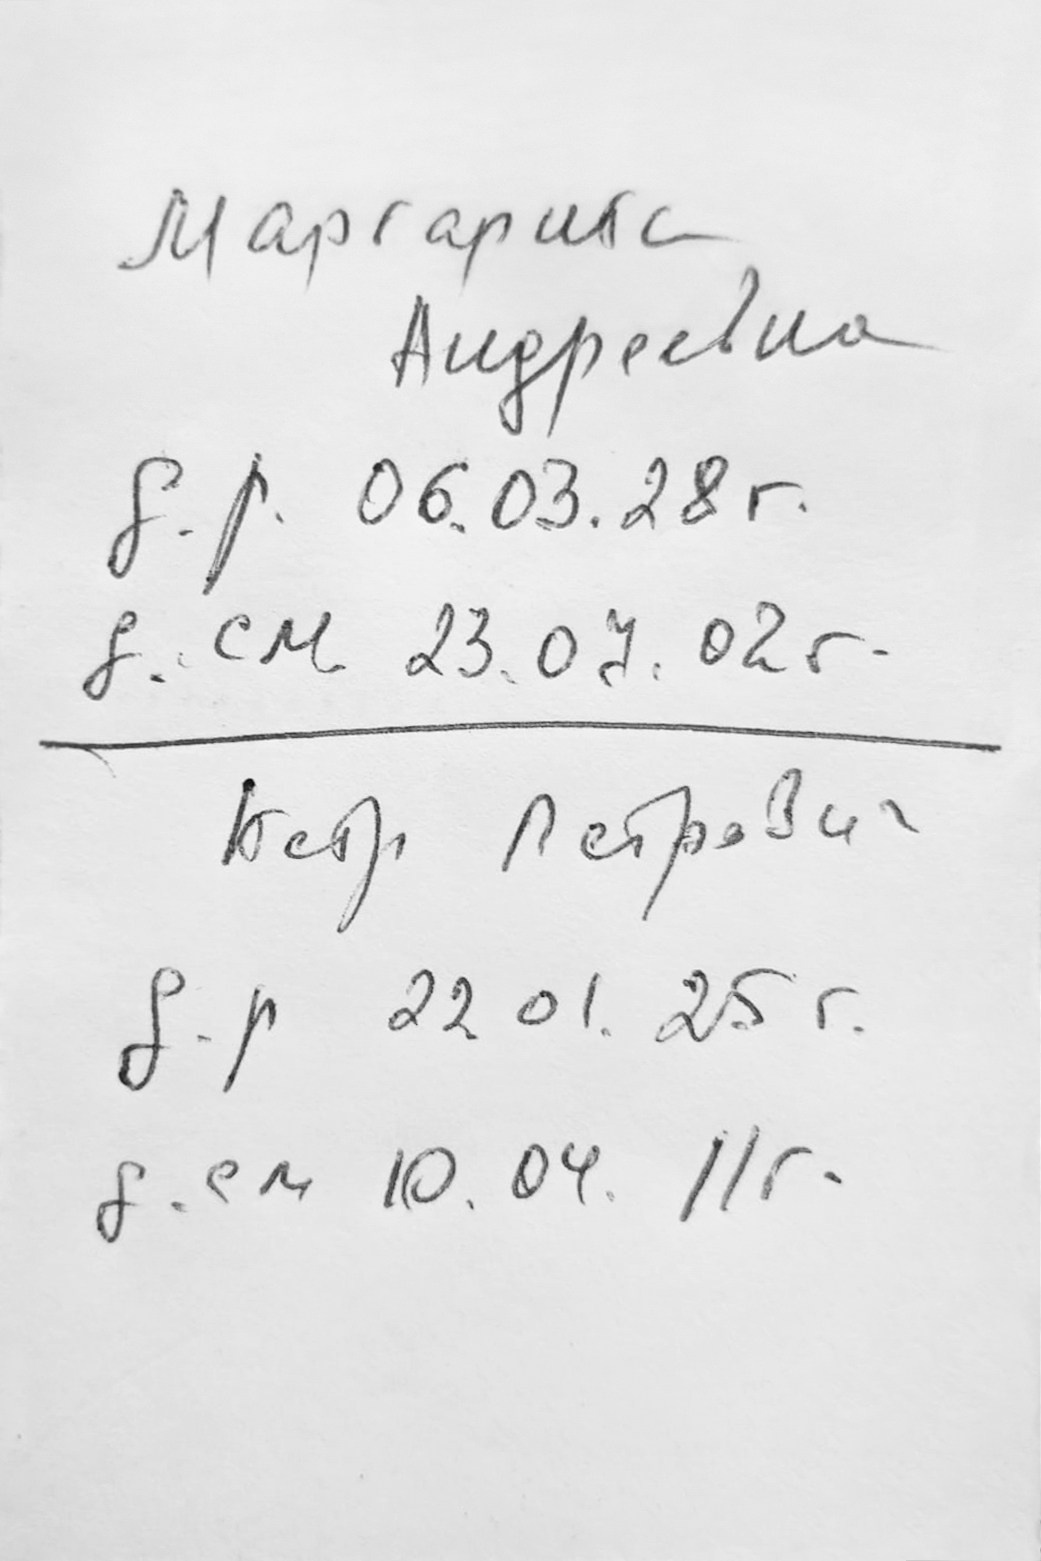 Маргарита
Андреевна
д.р. 06.03.28г.
д.см 23.07.02г.
Петр Петрович
д.р 22 01. 25 г.
д.см 10.04. 11г.